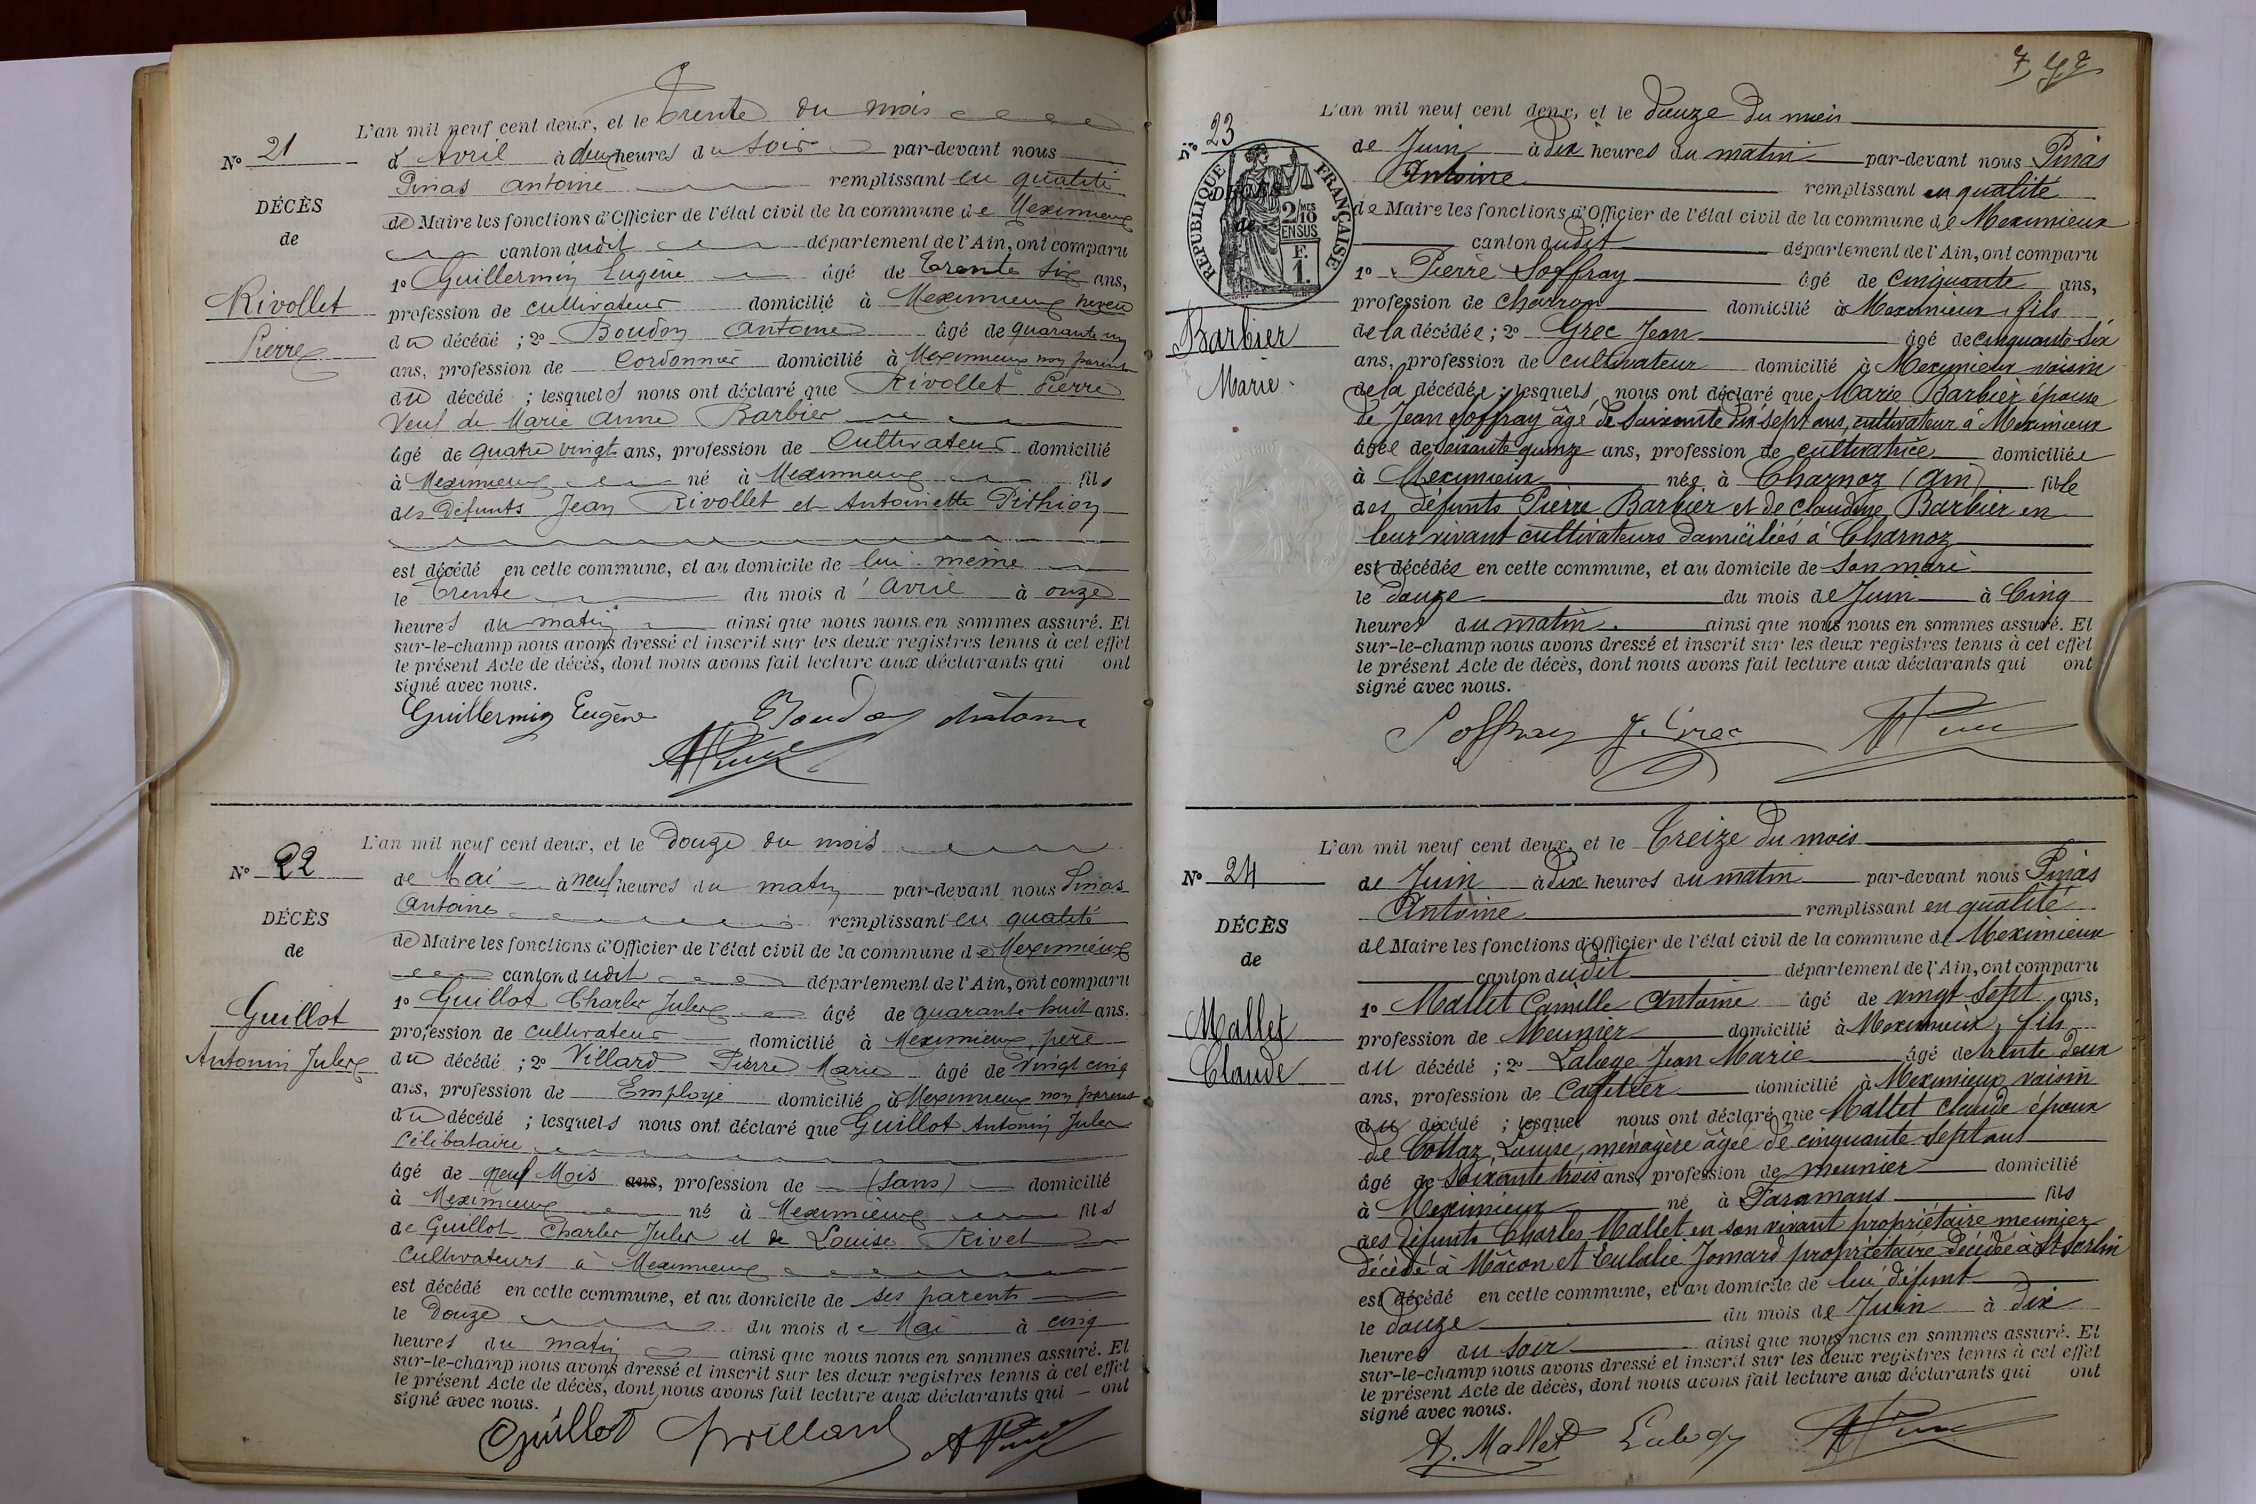 L'an mil neuf cent deux, et le Trente du mois
No 21
d'Avril à deux heures du soir par-devant nous
Pinas Antoine remplissant en qualité
DÉCÈS
de Maire les fonctions d'Officier de l'état civil de la commune de Meximieux
de
canton dudit département de l'Ain, ont comparu
1o Guillermin Eugène âgé de Trente six ans,
Rivollet
profession de cultivateur domicilié à Meximieux neveu
Pierre
du décédé ; 2o Boudon Antoine âgé de quarante un
ans, profession de Cordonnier domicilié à Meximieux non parent
du décédé ; lesquels nous ont déclaré que Rivollet Pierre
Veuf de Marie Anne Barbier
âgé de quatre vingt ans, profession de Cultivateur domicilié
à Meximieux né à Meximieux fils
des défunts Jean Rivollet et Antoinette Pithion
est décédé en cette commune, et au domicile de lui-même
le Trente du mois d'Avril à onze
heures du matin ainsi que nous nous en sommes assuré. Et
sur-le-champ nous avons dressé et inscrit sur les deux registres tenus à cet effet
le présent Acte de décès, dont nous avons fait lecture aux déclarants qui ont
signé avec nous.
Guillermin Eugène Boudon Antoine
L'an mil neuf cent deux, et le Douze du mois
No 22
de Mai à neuf heures du matin par-devant nous Pinas
Antoine remplissant en qualité
DÉCÈS
de Maire les fonctions d'Officier de l'état civil de la commune de Meximieux
de
canton dudit département de l'Ain, ont comparu
1o Guillot Charles Jules âgé de quarante huit ans.
Guillot
profession de cultivateur domicilié à Meximieux, père
Antonin Jules
du décédé ; 2o Villard Pierre Marie âgé de vingt cinq
ans, profession de Employé domicilié à Meximieux non parent
du décédé ; lesquels nous ont déclaré que Guillot Antonin Jules
célibataire
âgé de neuf Mois ans, profession de (sans) domicilié
à Meximieux né à Meximieux fils
de Guillot Charles Jules et de Louise Rivet
cultivateurs à Meximieux
est décédé en cette commune, et au domicile de ses parents
le Douze du mois de Mai à cinq
heures du matin ainsi que nous nous en sommes assuré. Et
sur-le-champ nous avons dressé et inscrit sur les deux registres tenus à cet effet
le présent Acte de décès, dont nous avons fait lecture aux déclarants qui ont
signé avec nous.
Guillot Villard
L'an mil neuf cent deux, et le douze du mois
No 23
de Juin à dix heures du matin par-devant nous Pinas
Antoine remplissant en qualité
RÉPUBLIQUE FRANÇAISE
DÉCÈS
2/10 MES
EN SUS
F.
1.
de
de Maire les fonctions d'Officier de l'état civil de la commune de Meximieux
canton dudit département de l'Ain, ont comparu
1o Pierre Soffray âgé de cinquante ans,
profession de charron domicilié à Meximieux, fils
Barbier
de la décédée ; 2o Grec Jean âgé de cinquante-six
ans, profession de cultivateur domicilié à Meximieux voisin
Marie
de la décédée ; lesquels nous ont déclaré que Marie Barbier épouse
de Jean Soffray âgé de soixante dix sept ans, cultivateur à Meximieux
âgée de soixante quinze ans, profession de cultivatrice domiciliée
à Meximieux née à Charnoz (Ain) fille
des défunts Pierre Barbier et de Claudine Barbier en
leur vivant cultivateurs domiciliés à Charnoz
est décédée en cette commune, et au domicile de son mari
le douze du mois de Juin à Cinq
heures du matin. ainsi que nous nous en sommes assuré. Et
sur-le-champ nous avons dressé et inscrit sur les deux registres tenus à cet effet
le présent Acte de décès, dont nous avons fait lecture aux déclarants qui ont
signé avec nous.
Soffray J. Grec
L'an mil neuf cent deux, et le Treize du mois
No 24
de Juin à dix heures du matin par-devant nous Pinas
Antoine remplissant en qualité
DÉCÈS
de Maire les fonctions d'Officier de l'état civil de la commune de Meximieux
de
canton dudit département de l'Ain, ont comparu
1o Mallet Camille Antoine âgé de vingt-sept ans,
Mallet
profession de Meunier domicilié à Meximieux, fils
Claude
du décédé ; 2o Jean Marie âgé de trente deux
ans, profession de Cafetier domicilié à Meximieux, voisin
du décédé ; lesquel nous ont déclaré que Mallet Claude époux
de Cottaz, Louise, ménagère âgée de cinquante-sept ans
âgé de soixante trois ans, profession de meunier domicilié
à Meximieux né à Faramans fils
des défunts Charles Mallet en son vivant propriétaire meunier
décédé à Mâcon et Eulalie Jomard propriétaire décédée à St Sorlin
est décédé en cette commune, et au domicile de lui défunt
le douze du mois de Juin à dix
heures du soir ainsi que nous nous en sommes assuré. Et
sur-le-champ nous avons dressé et inscrit sur les deux registres tenus à cet effet
le présent Acte de décès, dont nous avons fait lecture aux déclarants qui ont
signé avec nous.
A. Mallet